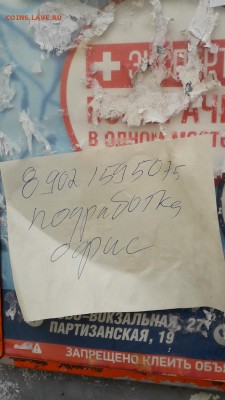 COINS.LAVE.RU
ЭКСПЕРТ
В ОДНОМ МЕСТЕ
8 902 1595075
подработка
офис
ВОКЗАЛЬНАЯ, 27
ПАРТИЗАНСКАЯ, 19
ЗАПРЕЩЕНО КЛЕИТЬ ОБЪ